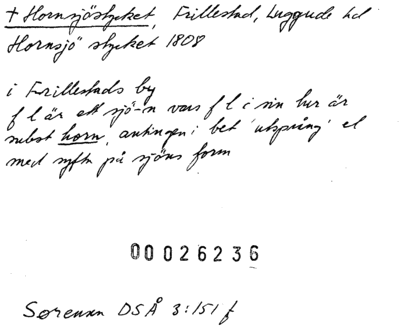 + Hornsjöstycket, Frillestad, Luggude hd
Hornsjö stycket 1808
i Frillestads by
f l är ett sjö-n vars f l i sin tur är
subst horn, antingen i bet 'utsprång' el
med syftn på sjöns form
00026236
Sørensen DSÅ 3:151 f